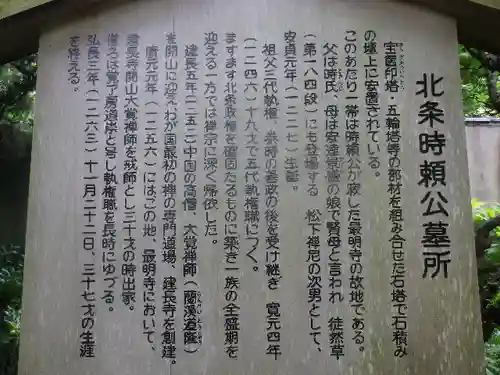 北条時頼公墓所
宝篋印塔、五輪塔等の部材を組み合せた石塔で石積み
の壇上に安置されている。
このあたり一帯は時頼公が寂した最明寺の故地である。
父は時氏、母は安達景盛の娘で賢母と言われ 徒然草
(第一八四段)にも登場する 松下禅尼の次男として、
安貞元年(一二二七)生誕。
祖父三代執権、泰時の善政の後を受け継ぎ 寛元四年
(一二四六)十九才で五代執権職につく。
ますます北条政権を磐固たるものに築き一族の全盛期を
迎える一方では禅宗に深く帰依した。
建長五年(一二五三)中国の高僧、大覚禅師(蘭溪道隆)
を開山に迎えわが国最初の禅の専門道場、建長寺を創建。
康元元年(一二五六)にはこの地、最明寺において、
建長寺開山大覚禅師を戒師とし三十才の時出家。
僧名は覚了房道崇と号し執権職を長時にゆづる。
弘長三年(一二六三)十一月二十二日、三十七才の生涯
を終える。